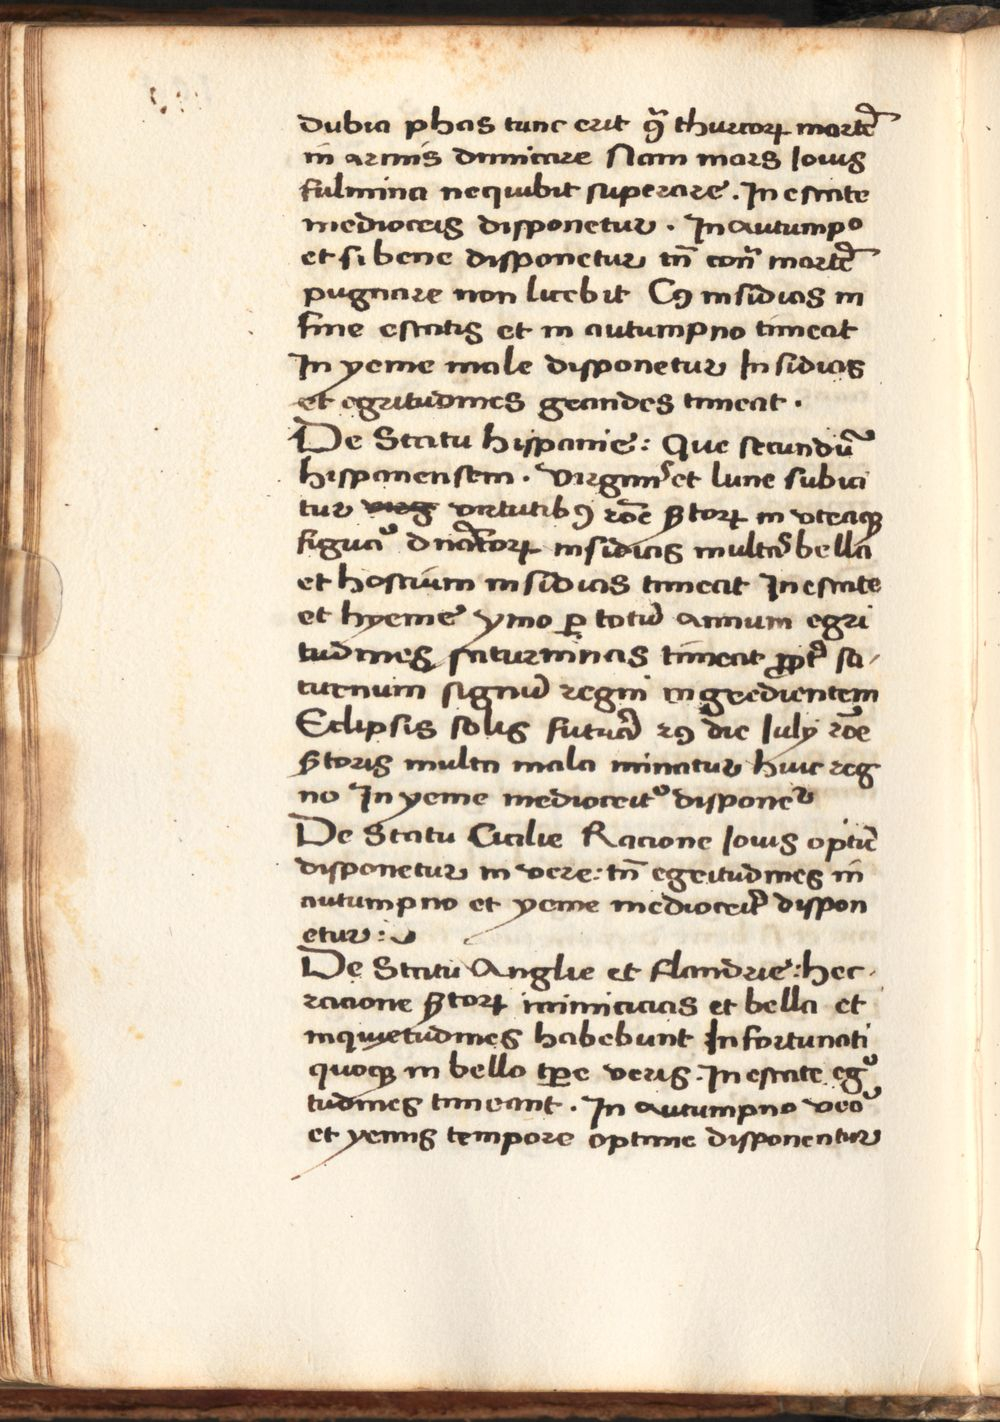 dubia phas tunc erit qͣ thurcoꝝ martē
in armis dimicare Nam mars Iouis
fulmina nequibit superare . In estate
mediocris disponetur . In autumpº
et si bene disponetur tn̄ con̄ martē
pugnare non licebit Cꝰ insidias in
fine estatis et in autumpno timeat
In yeme male disponetur Insidias
et egritudines grandes timeat .
De Statu hispanie : Que secundū
hispanensem . virginiˢ et lune subici
tur virtutibꝰ rōe in vtraqꝫ
insidias multa bella
et hostium insidias timeat In estate
et hyeme ymo ꝑ totū annum egri
tudines saturninas timeat ꝓpt̄ sa
turnum signū regni ingredientem
Eclipsis solis futura die Iuly rōe
multa mala minatur huic reg
no In yeme mediocritº disponeᵗ
De Statu Cicilie Racione Iouis optīe
disponetur in vere : tn̄ egritudines in
autumpno et yeme mediocrit̄ dispon
etur :
De Statu Anglie et flandrie : hec
racione inimicicias et bella et
inquietudines habebunt Infortunati
quoqꝫ in bello tꝑe veris . In estate egº
tudines timeant . In autumpno veō
et yemis tempore optime disponentur